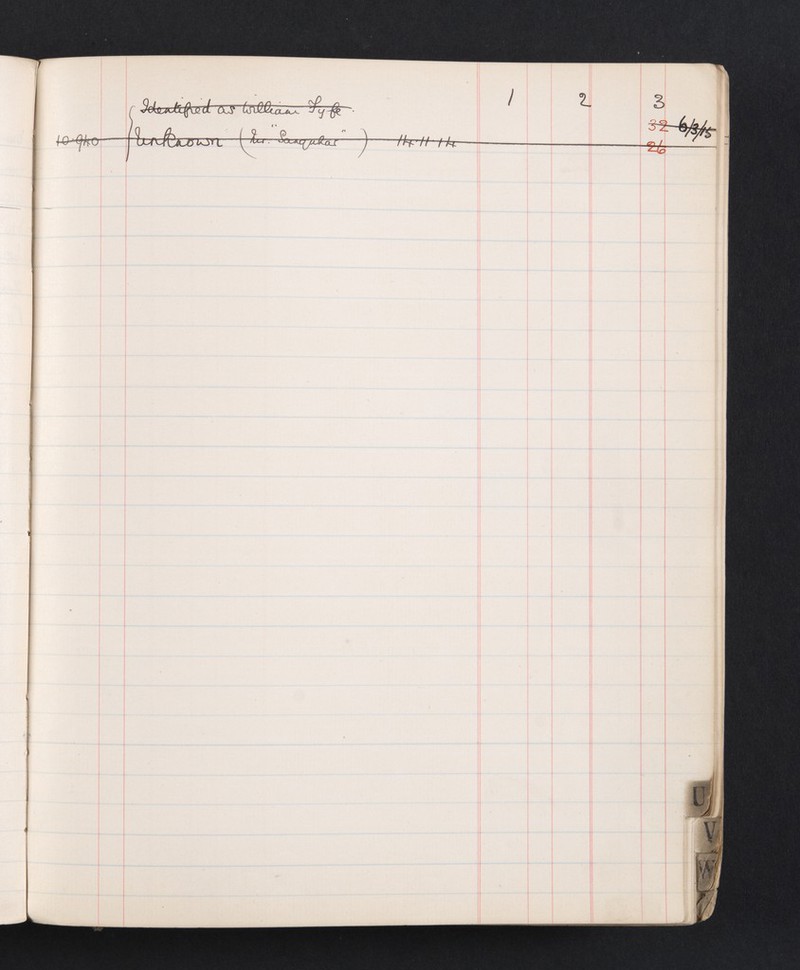 1 2 3
Identified as William Fyfe.
32 6/3/15
10.940 Unknown ( "Sanquhar" ) 14.11.14
26
U
V
W